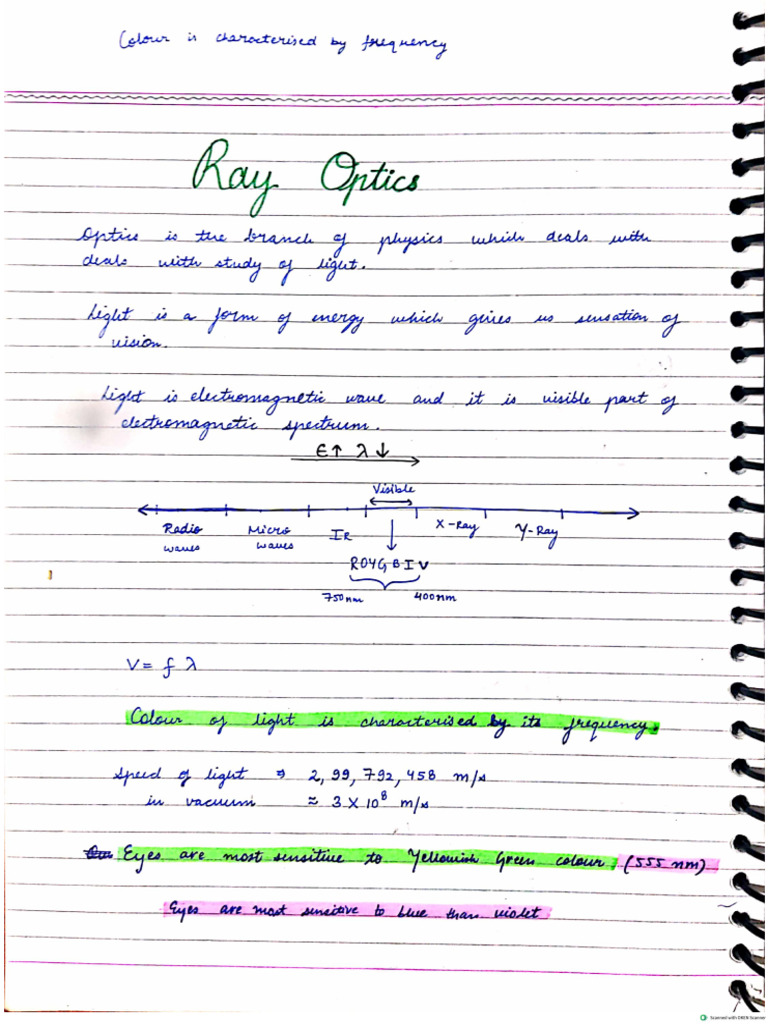 Colour is characterised by frequency
Ray Optics
Optics is the branch of physics which deals with
deals with study of light.
Light is a form of energy which gives us sensation of
vision.
Light is electromagnetic wave and it is visible part of
electromagnetic spectrum.
E↑ λ↓
Visible
Radio waves Micro waves IR X-Ray γ-Ray
ROYGBIV
750nm 400nm
V = f λ
Colour of light is characterised by its frequency.
Speed of light ⇒ 2,99,792,458 m/s
in vacuum ≈ 3 × 10⁸ m/s
Eyes are most sensitive to Yellowish Green colour. (555 nm)
Eyes are most sensitive to blue than violet
Scanned with OKEN Scanner